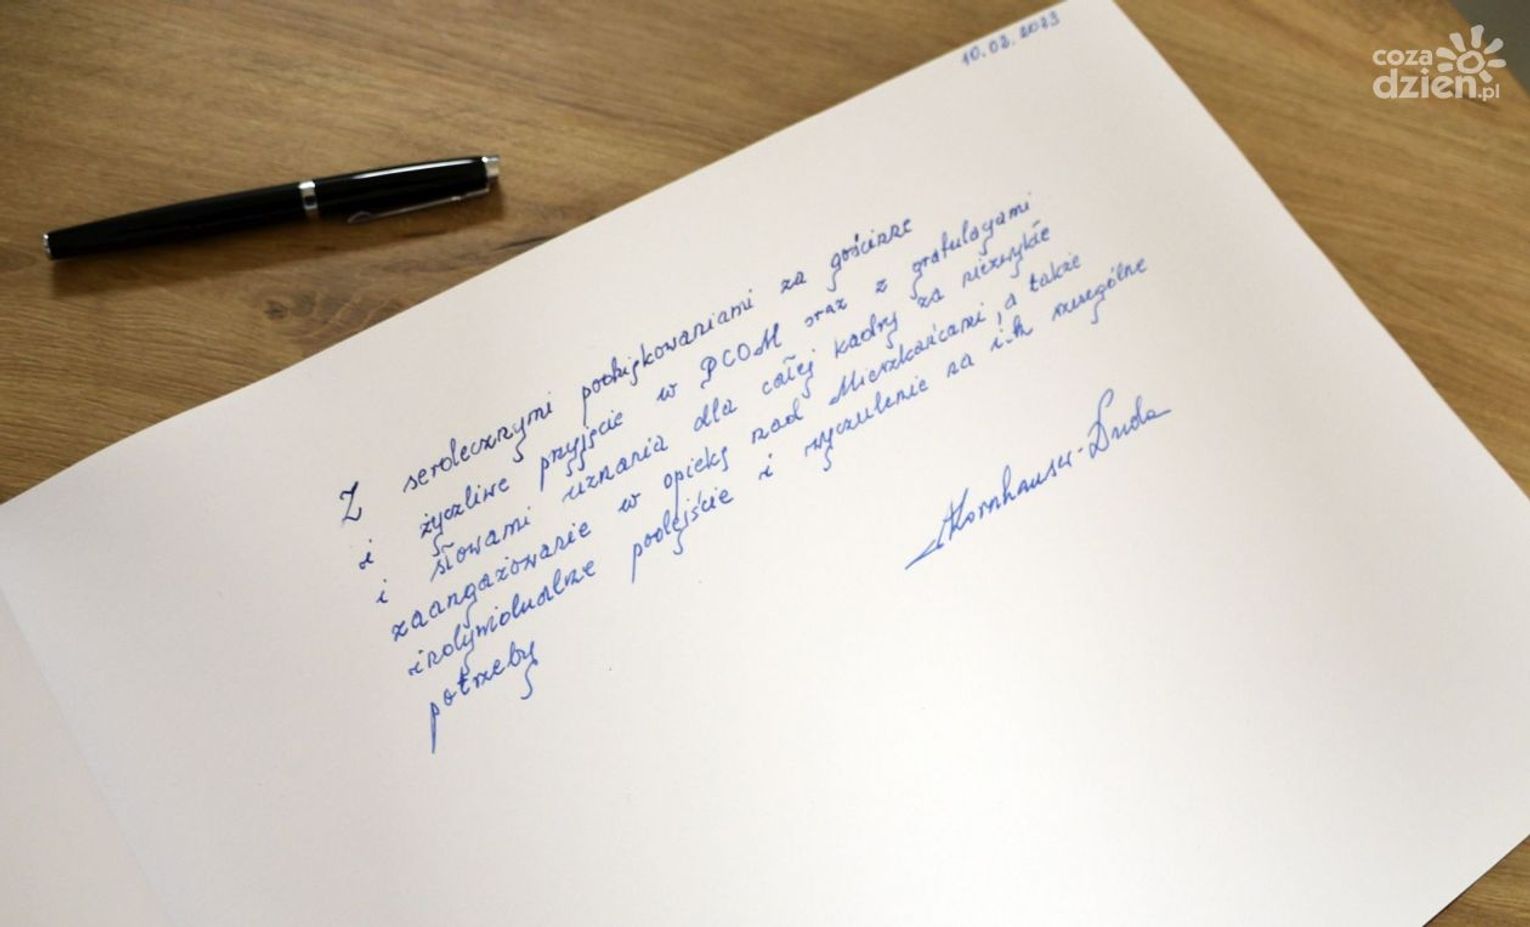 coza
dzien.pl
10.02.2023
Z serdecznymi podziękowaniami za gościnne
i życzliwe przyjęcie w PCOM oraz z gratulacjami
i słowami uznania dla całej kadry za niezwykłe
zaangażowanie w opiekę nad Mieszkańcami, a także
indywidualne podejście i wyczulenie na ich szczególne
potrzeby
AKornhauser-Duda